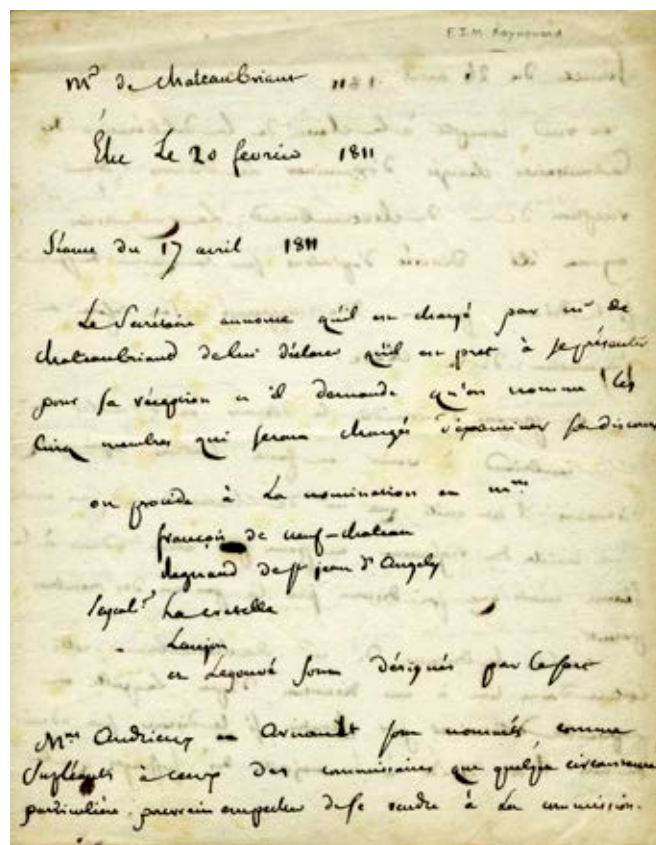 F.J.M. Raynouard
Mr de chateaubriant 1811.
Élu Le 20 fevrier 1811
Séance du 17 avril 1811
Le Secrétaire annonce qu'il est chargé par mr de
chateaubriand de lui déclarer qu'il est pret à se présenter
pour sa réception et il demande qu'on nomme les
Cinq membres qui seront chargés d'examiner son discours
on procède à La nomination et mrs
françois de neuf-chateau
Regnaud de st jean d'Angely
Lacretelle
Laujon
et Legouvé sont désignés par le sort
Mrs Andrieux et Arnault sont nommés comme
Supléants à ceux des commissaires que quelque circonstance
particulière pourrait empecher de se rendre à La commission.